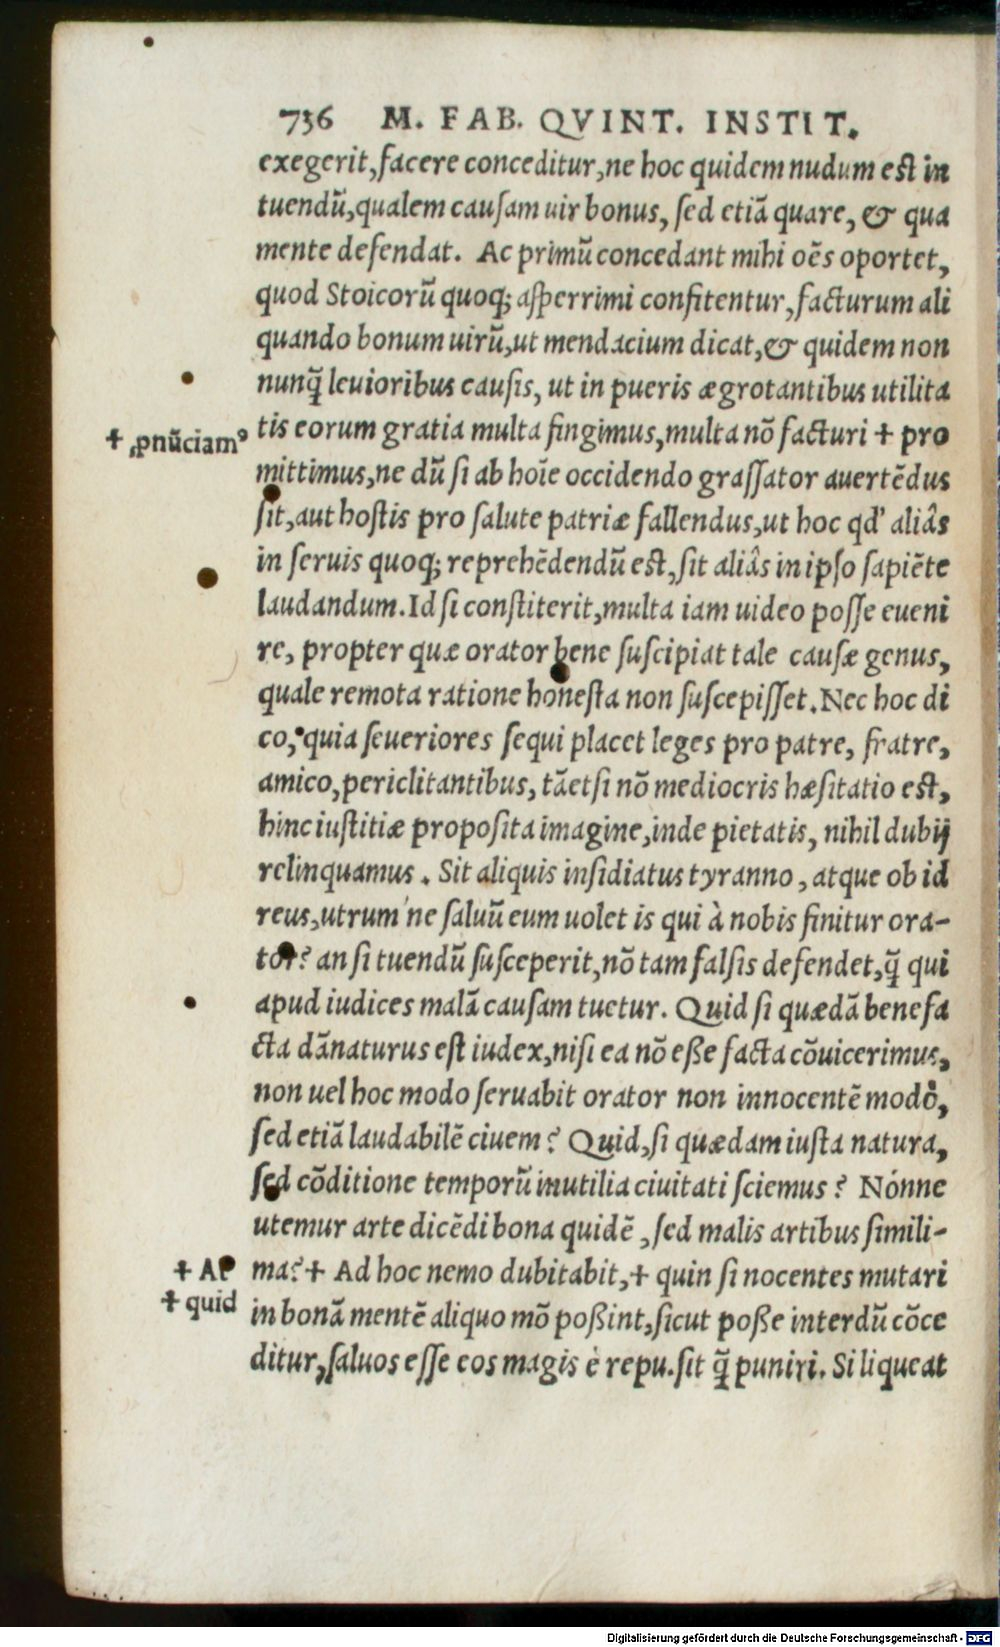 736 M. FAB. QVINT. INSTIT.
exegerit, facere conceditur, ne hoc quidem nudum est in
tuendũ, qualem causam uir bonus, sed etiã quare, & qua
mente defendat. Ac primũ concedant mihi oẽs oportet,
quod Stoicorũ quoq; asperrimi confitentur, facturum ali
quando bonum uirũ, ut mendacium dicat, & quidem non
nunq̃ leuioribus causis, ut in pueris ægrotantibus utilita
✝ ꝓnũciamꝰ
tis eorum gratia multa fingimus, multa nõ facturi ✝ pro
mittimus, ne dũ si ab hoĩe occidendo grassator auertẽdus
sit, aut hostis pro salute patriæ fallendus, ut hoc qd' aliâs
in seruis quoq; reprehẽdendũ est, sit aliâs in ipso sapiẽte
laudandum. Id si constiterit, multa iam uideo posse eueni
re, propter quæ orator bene suscipiat tale causæ genus,
quale remota ratione honesta non suscepisset. Nec hoc di
co, quia seueriores sequi placet leges pro patre, fratre,
amico, periclitantibus, tãetsi nõ mediocris hæsitatio est,
hinc iustitiæ proposita imagine, inde pietatis, nihil dubij
relinquamus. Sit aliquis insidiatus tyranno, atque ob id
reus, utrum'ne saluũ eum uolet is qui à nobis finitur ora-
tor? an si tuendũ susceperit, nõ tam falsis defendet, q̃ qui
apud iudices malã causam tuetur. Quid si quædã benefa
cta dãnaturus est iudex, nisi ea nõ eße facta cõuicerimus,
non uel hoc modo seruabit orator non innocentẽ modò,
sed etiã laudabilẽ ciuem? Quid, si quædam iusta natura,
sed cõditione temporũ inutilia ciuitati sciemus? Nónne
utemur arte dicẽdi bona quidẽ, sed malis artibus simili-
✝ At
ma? ✝ Ad hoc nemo dubitabit, ✝ quin si nocentes mutari
✝ quid
in bonã mentẽ aliquo mõ poßint, sicut poße interdũ cõce
ditur, saluos esse eos magis è repu. sit q̃ puniri. Si liqueat
Digitalisierung gefördert durch die Deutsche Forschungsgemeinschaft - DFG